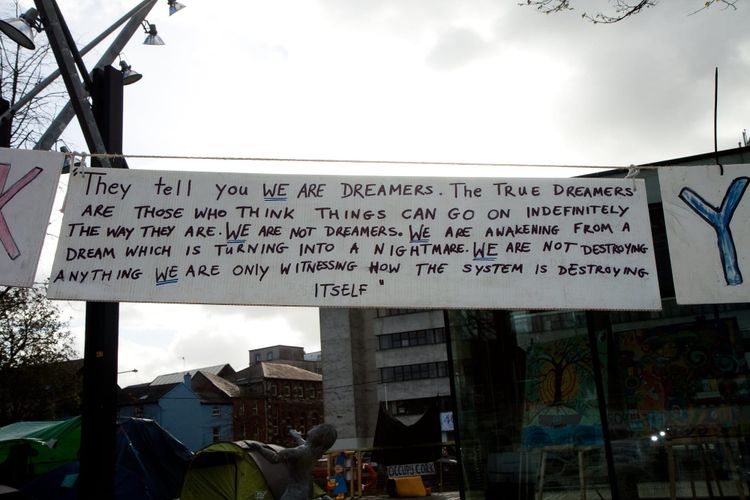 "They tell you WE ARE DREAMERS. The TRUE DREAMERS
ARE THOSE WHO THINK THINGS CAN GO ON INDEFINITELY
THE WAY THEY ARE. WE ARE NOT DREAMERS. WE ARE AWAKENING FROM A
DREAM WHICH IS TURNING INTO A NIGHTMARE. WE ARE NOT DESTROYING
ANYTHING WE ARE ONLY WITNESSING HOW THE SYSTEM IS DESTROYING
ITSELF"
K
Y
OCCUPY CORK